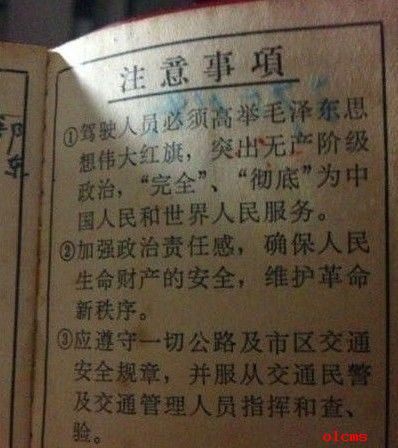 注意事項
①驾驶人员必须高举毛泽东思
想伟大红旗，突出无产阶级
政治，“完全”、“彻底”为中
国人民和世界人民服务。
②加强政治责任感，确保人民
生命财产的安全，维护革命
新秩序。
③应遵守一切公路及市区交通
安全规章，并服从交通民警
及交通管理人员指挥和查、
验。
olcms